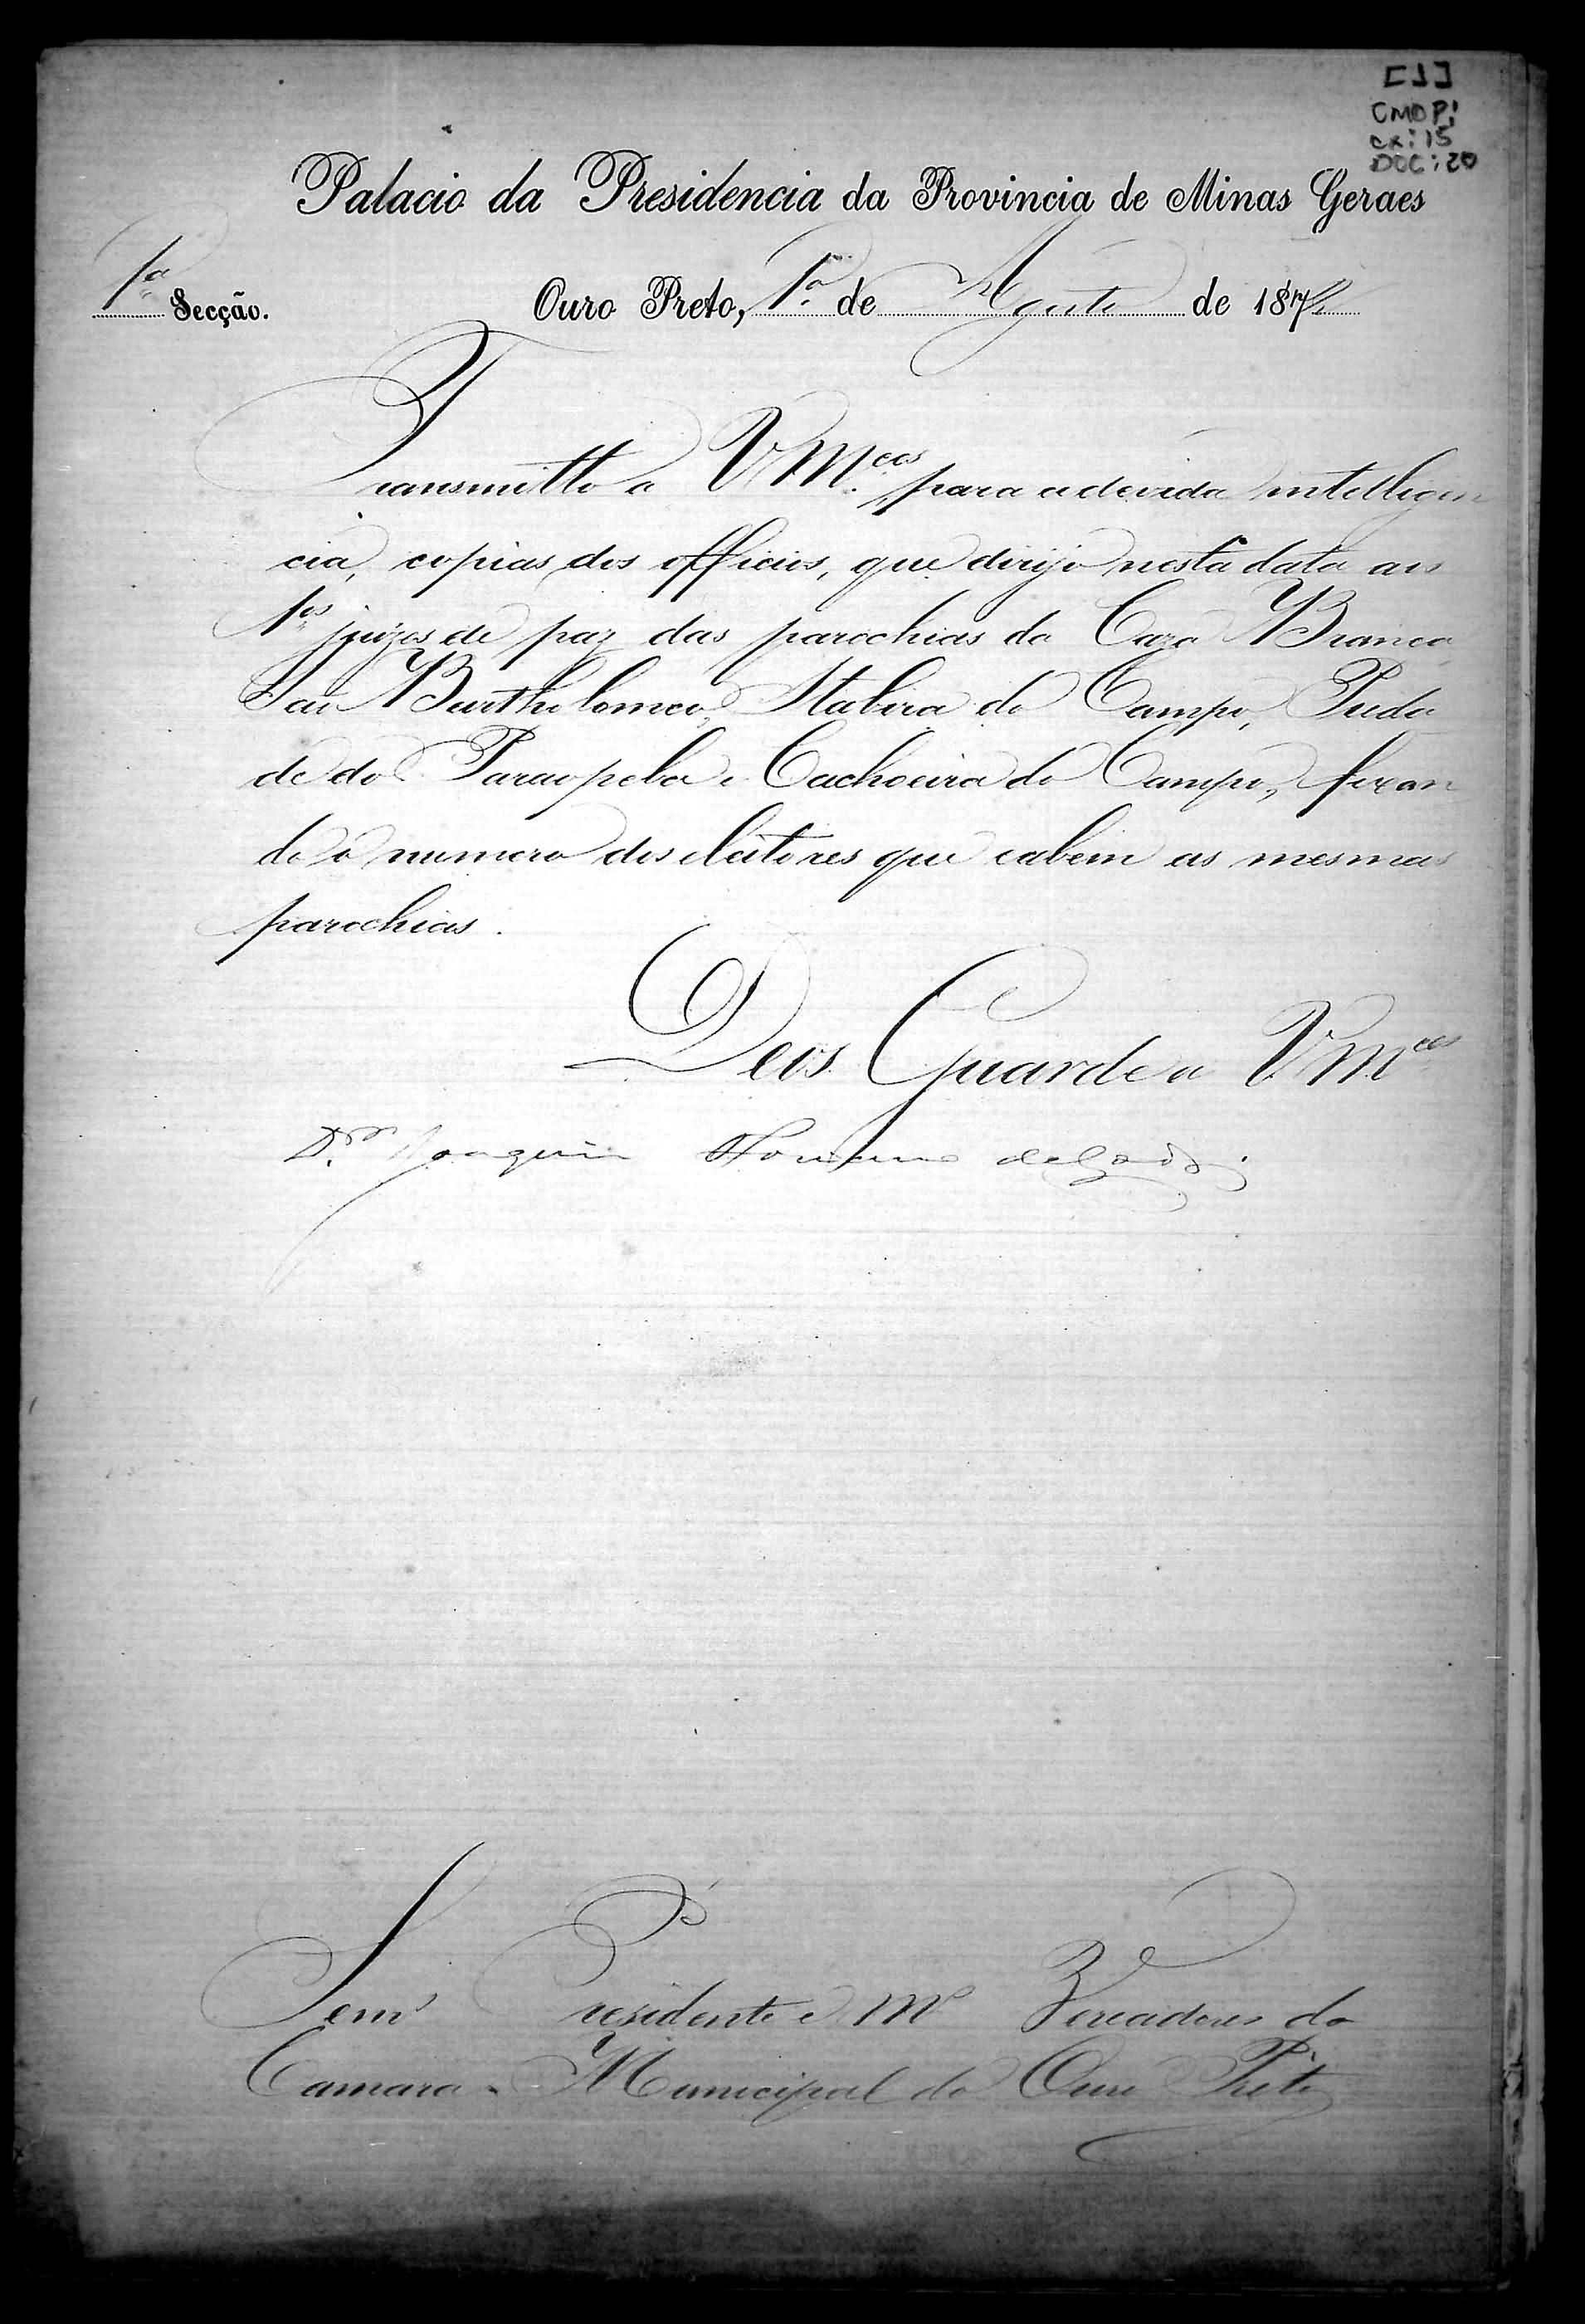 [1]
CMOP!
cx: 15
DOC: 20
Palacio da Presidencia da Provincia de Minas Geraes
1ª Secção. Ouro Preto, 1º de Agosto de 1872
Transmitto a VM.ces para a devida intelligen
cia, copias dos officios, que dirijo nesta data aos
1os juizes de paz das parochias da Caza Branca
São Bartholomeo, Itabira do Campo, Pieda
de do Paraopeba e Cachoeira do Campo, fixan
do o numero dos eleitores que cabem as mesmas
parochias.
Deos Guarde a VMces
Joaquim
Presidente e Vereadores da
Camara Municipal do Ouro Preto